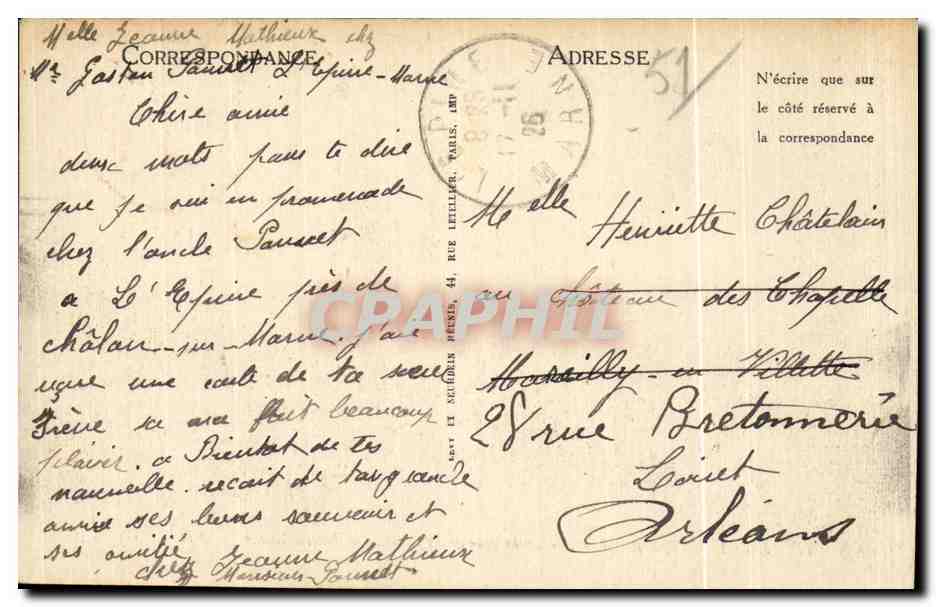 Melle Jeanne Mathieux chez
Mr Gaston Pannet L'Epine-Marne
CORRESPONDANCE
Chère amie
deux mots pour te dire
que je sui en promenade
chez l'oncle Pannet
a L'Epine près de
Châlon-sur-Marne. j'ai
une carte de ta sœur
Irène sa ma fait beaucoup
plaisir. a Bientot de tes
nouvelle. recoit de ta grande
amie ses bons souvenir et
ses amitié
Jeanne Mathieux
chez Monsieur Pannet
LEVY ET NEURDEIN RÉUNIS, 44, RUE LETELLIER, PARIS, IMP
L'EPINE MARNE
8 25
17-11
26
ADRESSE
51
N'écrire que sur
le côté réservé à
la correspondance
Melle Henriette Châtelain
au château des Chapelle
Marcilly-en Villette
28 rue Bretonnerie
Loiret
Orléans
CRAPHIL